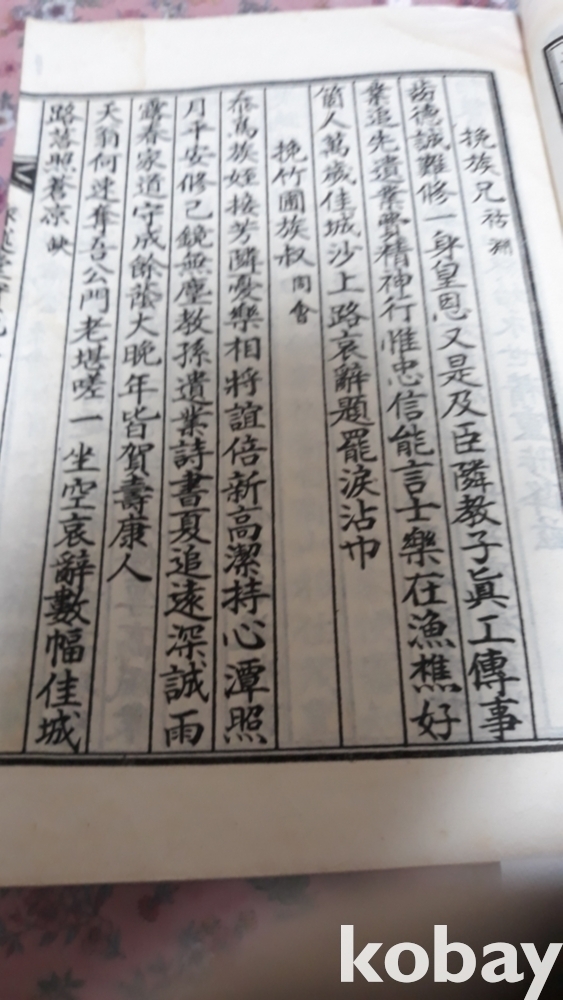 挽族兄
齒德誠難修一身皇恩又是及臣隣教子眞工傳事
業追先遺業費精神行惟忠信能言士樂在漁樵好
箇人萬歲佳城沙上路哀辭題罷淚沾巾
挽竹圃族叔
忝爲族姪接芳隣憂樂相將誼倍新高潔持心潭照
月平安修己鏡無塵教孫遺業詩書夏追遠深誠雨
露春家道守成餘蔭大晚年皆賀壽康人
天翁何速奪吾公門老堪嗟一坐空哀辭數幅佳城
路落照蒼凉
kobay